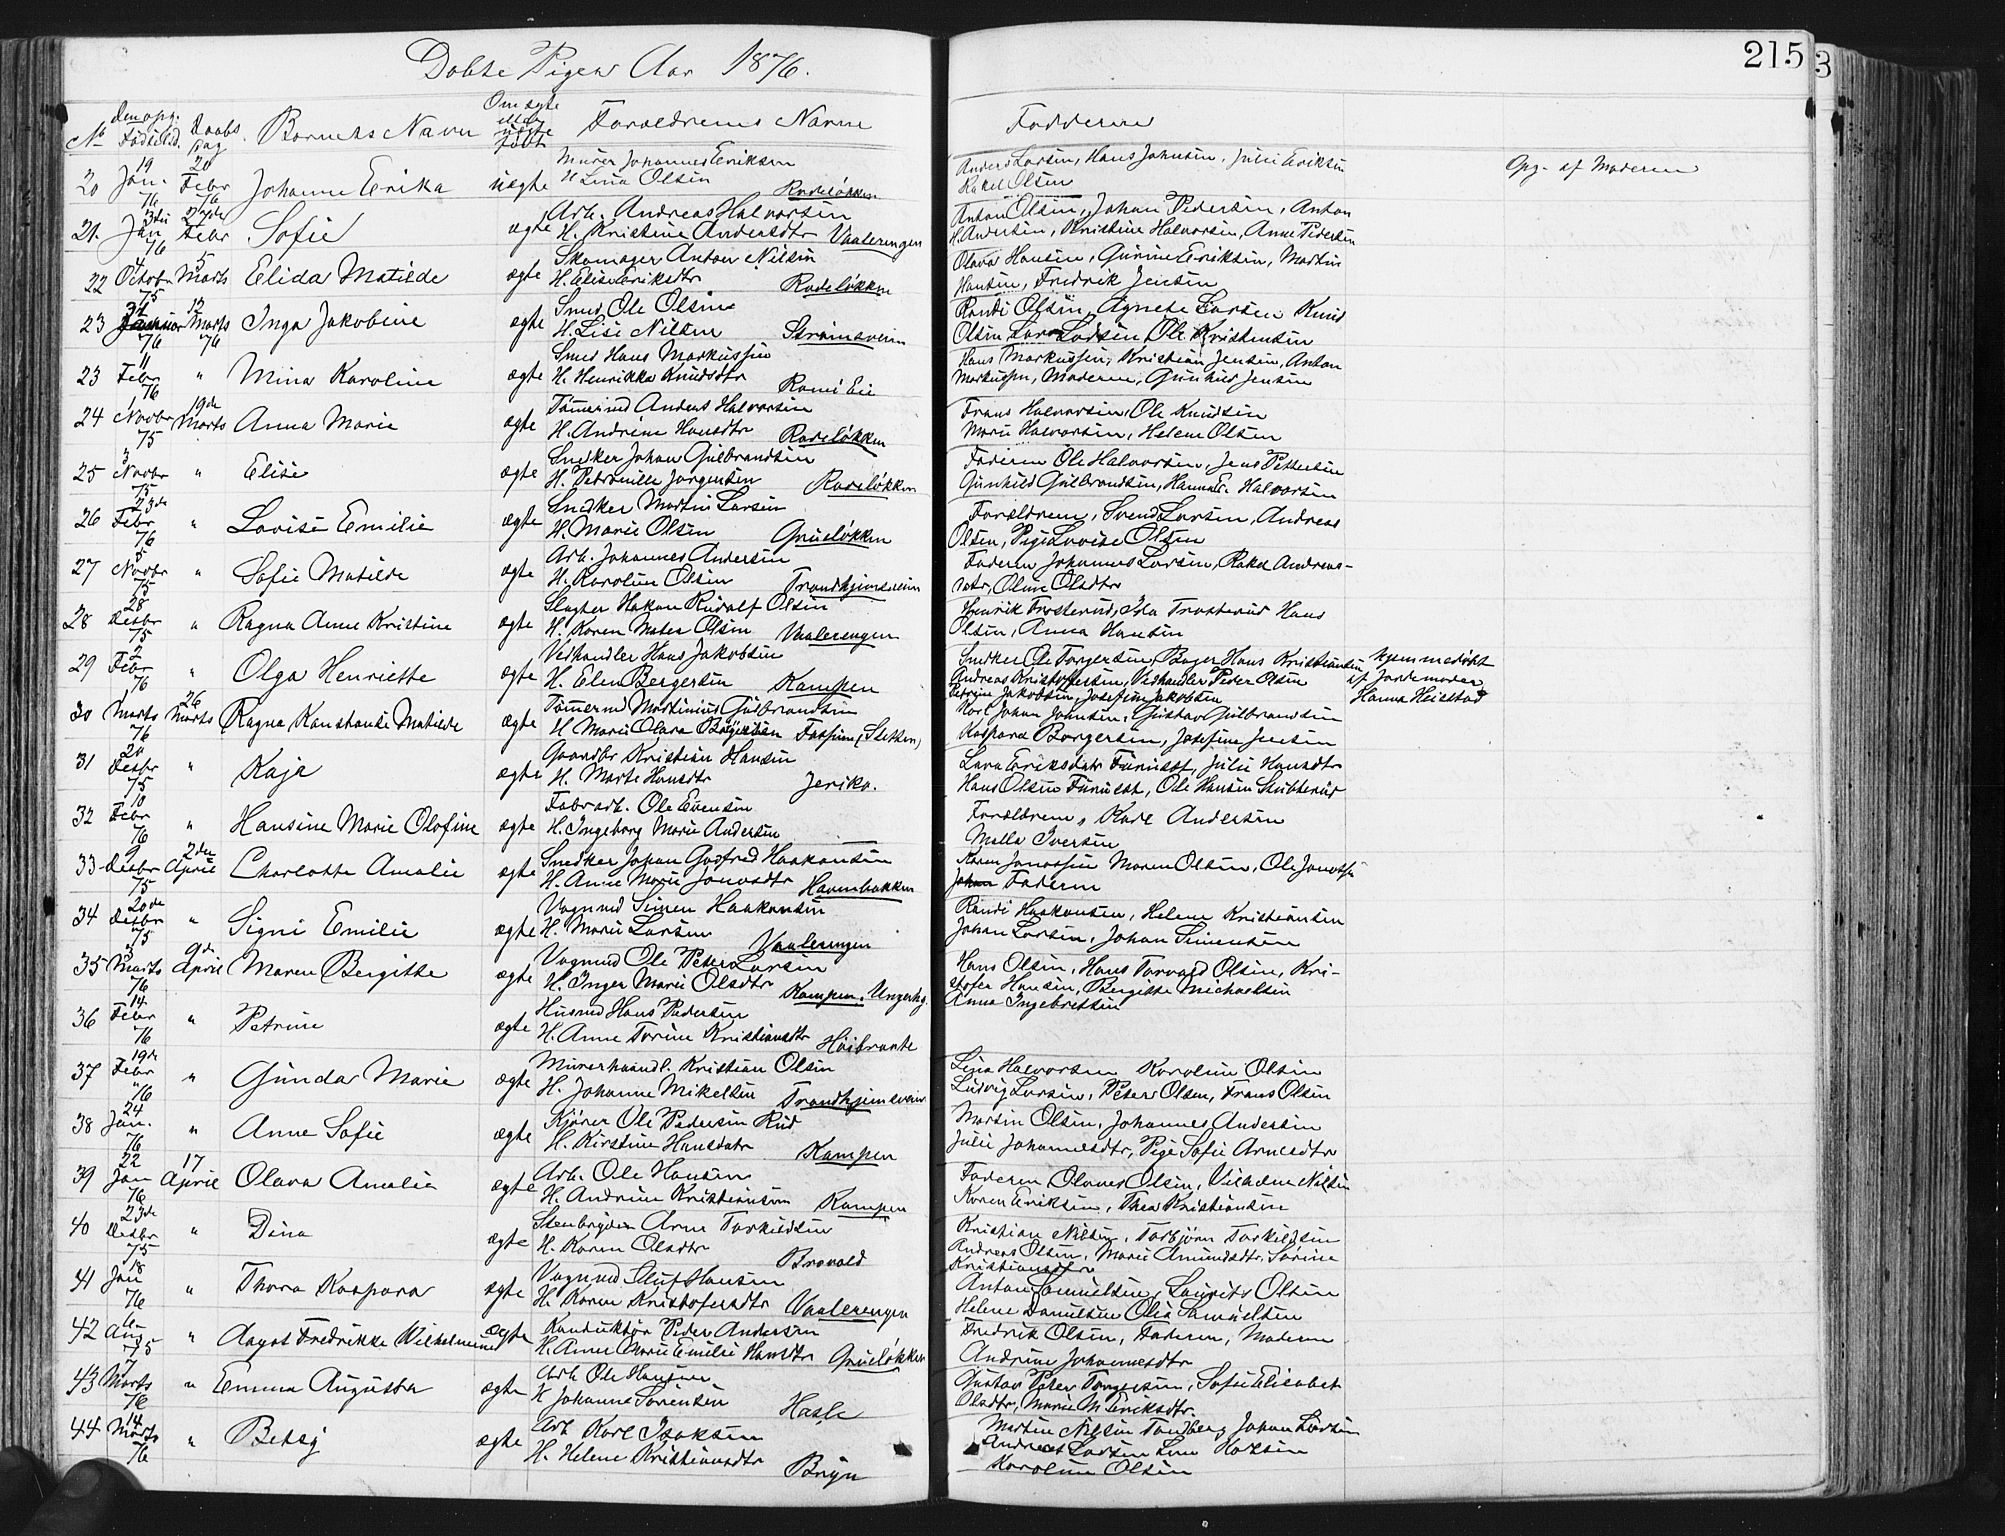 Døbte Piger Aar 1876.
215
No
Den opg. Fødselsd.
Daabs Dag
Barnets Navn
Om ægte eller uægte født
Forældrenes Navne
Fadderne
20 19 Jan. 76 20 Febr 76 Johanne Erika uægte Murer Johannes Eriksen
Lina Olsen Rodeløkken
Anders Larsen, Hans Johnsen, Julie Eriksen
Rakel Olsen
Opg. af Moderen
21. 3die Jan 76 27de Febr Sofie ægte Arb. Andreas Halvorsen
H. Kristine Andersdtr Vaalerengen
Anton Olsen, Johan Pedersen, Anton
H. Andersen, Kristine Halvorsen, Anne Pedersen
22 4 Octobr 75 5 Marts Elida Matilde ægte Skomager Anton Nilsen
H. Elise Eriksdtr Rodeløkken
Olava Hansen, Gurine Eriksen, Martin
Hansen, Fredrik Jensen
23 31 Januar 76 12 Marts 76 Inga Jakobine ægte Smed Ole Olsen
H. Lise Nilsen Strømsveien
Randi Olsen, Agnete Larsen Knud
Olsen Lars Larsen Ole Kristensen
23 11 Febr 76 " Mina Karoline ægte Smed Hans Markussen
H. Henrikka Knudsdtr
Hans Markussen, Kristian Jensen, Anton
Markussen, Moderen, Gunhild Jensen
24 1 Novbr 75 19de Marts Anna Marie ægte Tømmermd Anders Halvorsen
H. Andrine Hansdtr Rodeløkken
Frans Halvorsen, Ole Knudsen
Marie Halvorsen, Helene Olsen
25 3 Novbr 75 " Elise ægte Snedker Johan Gulbrandsen
H. Petronille Jørgensen Rodeløkken
Faderen Ole Halvorsen, Jens Pettersen
Gunhild Gulbrandsen, Hanna E. Halvorsen
26 23de Febr 76 " Lovise Emilie ægte Snedker Martin Larsen
H. Marie Olsen Grueløkken
Forældrene, Svend Larsen, Andreas
Olsen, Pige Lovise Olsen
27 5 Novbr 75 " Sofie Matilde ægte Arb. Johannes Andersen
H. Karoline Olsen Trondhjemsveien
Faderen Johannes Larsen, Rakel Andreas-
datr, Oline Olsdtr
28 28 Decbr 75 " Ragna Anne Kristine ægte Slagter Hakon Rudolf Olsen
H. Karen Matea Olsen Vaalerengen
Henrik Trosterud, Ida Trosterud Hans
Olsen, Anna Hansen
29 2 Febr 76 " Olga Henriette ægte Vedhandler Hans Jakobsen
H. Elen Bergersen Kampen
Snedker Ole Torgersen, Bager Hans Kristiansen
Andreas Kristoffersen, Vedhandler Peder Olsen
Petrine Jakobsen, Josefine Jakobsen
hjemmedøbt af Jordemoder Hanna Heistad
30 1 Marts 76 26 Marts Ragna Konstance Matilde ægte Tømmermd Martinius Gulbrandsen
H. Marie Olava Børgersen Fossum (Sletten)
Karl Johan Johnsen, Gustav Gulbrandsen
Kaspara Borgersen, Josefine Jensen
31 20 Decbr 75 " Kaja ægte Gaardbr Kristian Hansen
H. Marte Hansdtr Jeriko.
Lara Eriksdatr Furuset, Julie Hansdtr
Hans Olsen Furuset, Ole Hansen Stubberud
32 10 Febr 76 " Hansine Marie Olofine ægte Fabrarb. Ole Evensen
H. Ingeborg Marie Andersen
Forældrene, Karl Andersen
Malla Iversen
33 9 Decbr 75 2den April Charlotte Amalie ægte Snedker Johan Godfred Haakonsen
H. Anne Marie Jonasdtr Havnebakken
Karen Jonassen Maren Olsen, Ole Jonassen
Johan Faderen
34 20de Decbr 75 " Signi Emilie ægte Vognmd Simen Haakonsen
H. Marie Larsen Vaalerengen
Randi Haakonsen, Helene Kristiansen
Johan Larsen, Johan Simensen
35 3 Marts 76 9de April Maren Bergitte ægte Vognmd Ole Peter Larsen
H. Inger Marie Olsdtr Kampen
Hans Olsen, Hans Torvald Olsen, Kri-
stofer Hansen, Bergitte Michaelsen
Anna Ingebretsen
36 14 Febr 76 " Petrine ægte Husmd Hans Pedersen
H. Anne Torine Kristiansdtr Høibraate
37 19de Febr 76 " Gunda Marie ægte Murerhaandl. Kristian Olsen
H. Johanne Mikelsen Trondhjemsveien
Lina Halvorsen Karoline Olsen
Ludvig Larsen, Peter Olsen, Frans Olsen
38 24 Jan. 76 " Anne Sofie ægte Kjører Ole Pedersen Rud
H. Kirstine Hansdatr Kampen
Martin Olsen, Johannes Andersen
Julie Johannesdtr, Pige Sofie Arnesdtr
39 22 Jan 76 17 April Olava Amalie ægte Arb. Ole Hansen
H. Andrine Kristiansen Kampen
Faderen Olaves Olsen, Vilhelm Nilsen
Karen Eriksen, Thea Kristiansen
40 23de Decbr 75 " Dina ægte Stenbryder Arne Torkildsen
H. Karen Olsdtr Brovold
Kristian Nilsen, Torbjørn Torkildsen
Andreas Olsen, Marie Amundsdtr, Sørine
Kristiansdtr
41 18 Jan 76 " Thora Kaspara ægte Vognmd Oluf Hansen
H. Karen Kristofersdtr Vaalerengen
Anton Samuelsen, Laurits Olsen
Helene Danielsen Olia Samuelsen
42 6 Aug 75 " Aagot Fredrikke Wilhelmine ægte Konduktør Peder Andersen
H. Anne Marie Emilie Hansdtr Grueløkken
Fredrik Olsen, Faderen, Moderen
Andrine Johannesdtr
43 7 Marts 76 " Emma Augusta ægte Arb. Ole Hansen
H Johanne Sørensen Hasle
Gustav Peter Torgersen, Sofie Elisabet
Olsdtr, Marie M. Eriksdtr
44 14 Marts 76 " Betsy ægte Arb Karl Isaksen
H. Helene Kristiansdtr Bryn
Martin Nilsen Tandberg Johan Larsen
Andreas Larsen Lina Hansen
Karoline Olsen